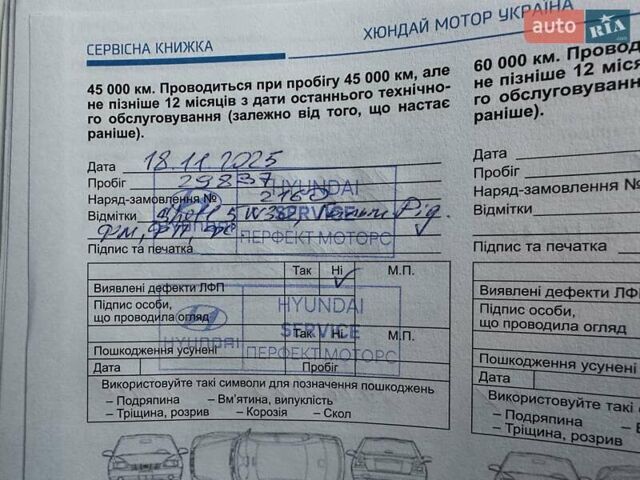 ХЮНДАЙ МОТОР УКРАЇНА
auto RIA .com
СЕРВІСНА КНИЖКА
45 000 км. Проводиться при пробігу 45 000 км, але
не пізніше 12 місяців з дати останнього технічно-
го обслуговування (залежно від того, що настає
раніше).
Дата 18.11.2025
Пробіг 29837
Наряд-замовлення № 2160
Відмітки 5W30,
ФМ,
Підпис та печатка
HYUNDAI
SERVICE
ПЕРФЕКТ МОТОРС
Так Ні М.П.
Виявлені дефекти ЛФП
Підпис особи,
що проводила огляд
HYUNDAI
SERVICE
HYUNDAI
ПЕРФЕКТ МОТОРС
Так Ні М.П.
Пошкодження усунені
Дата Пробіг
Використовуйте такі символи для позначення пошкоджень
– Подряпина – Вм'ятина, випуклість
– Тріщина, розрив – Корозія – Скол
60 000 км. Проводи
не пізніше 12 місяці
го обслуговування
раніше).
Дата
Пробіг
Наряд-замовлення №
Відмітки
Підпис та печатка
Виявлені дефекти ЛФП
Підпис особи,
що проводила огляд
Пошкодження усунені
Дата
Використовуйте такі
– Подряпина
– Тріщина, розрив